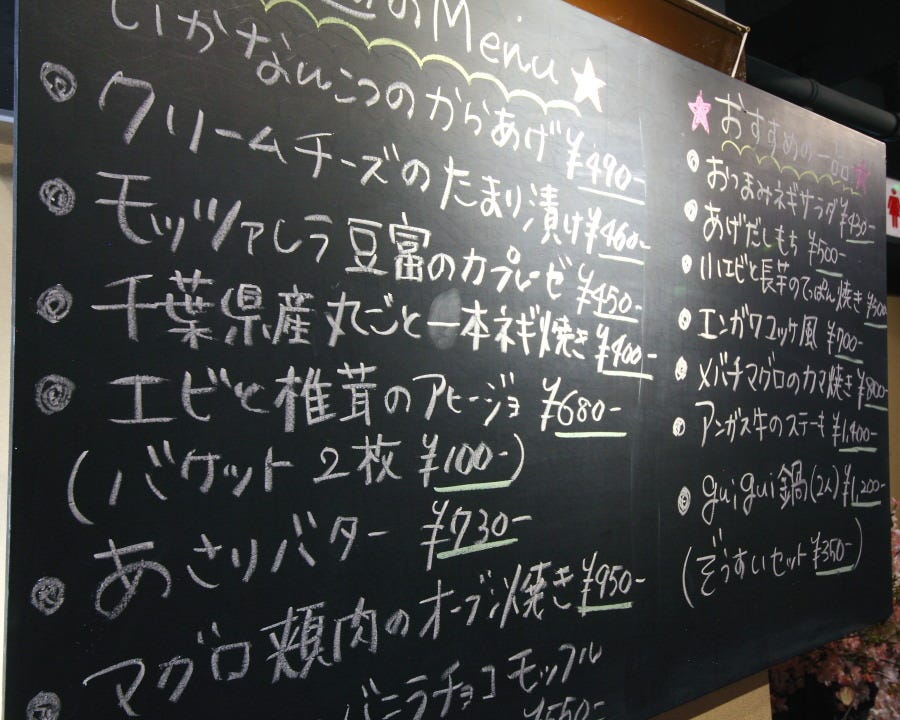 のMenu
いかなんこつのからあげ ¥490-
クリームチーズのたまり漬け ¥460-
モッツァレラ豆富のカプレーゼ ¥450-
千葉県産丸ごと一本ネギ焼き ¥400-
エビと椎茸のアヒージョ ¥680-
(バケット 2枚 ¥100-)
あさりバター ¥730-
マグロ頬肉のオーブン焼き ¥950-
バニラチョコモッフル
¥550-
おすすめの一品
おつまみネギサラダ ¥430-
あげだしもち ¥500-
小エビと長芋のてっぱん焼き
エンガワユッケ風 ¥700-
メバチマグロのカマ焼き ¥800-
アンガス牛のステーキ ¥1,400-
guigui鍋(2人) ¥1,200-
(ぞうすいセット ¥350-)